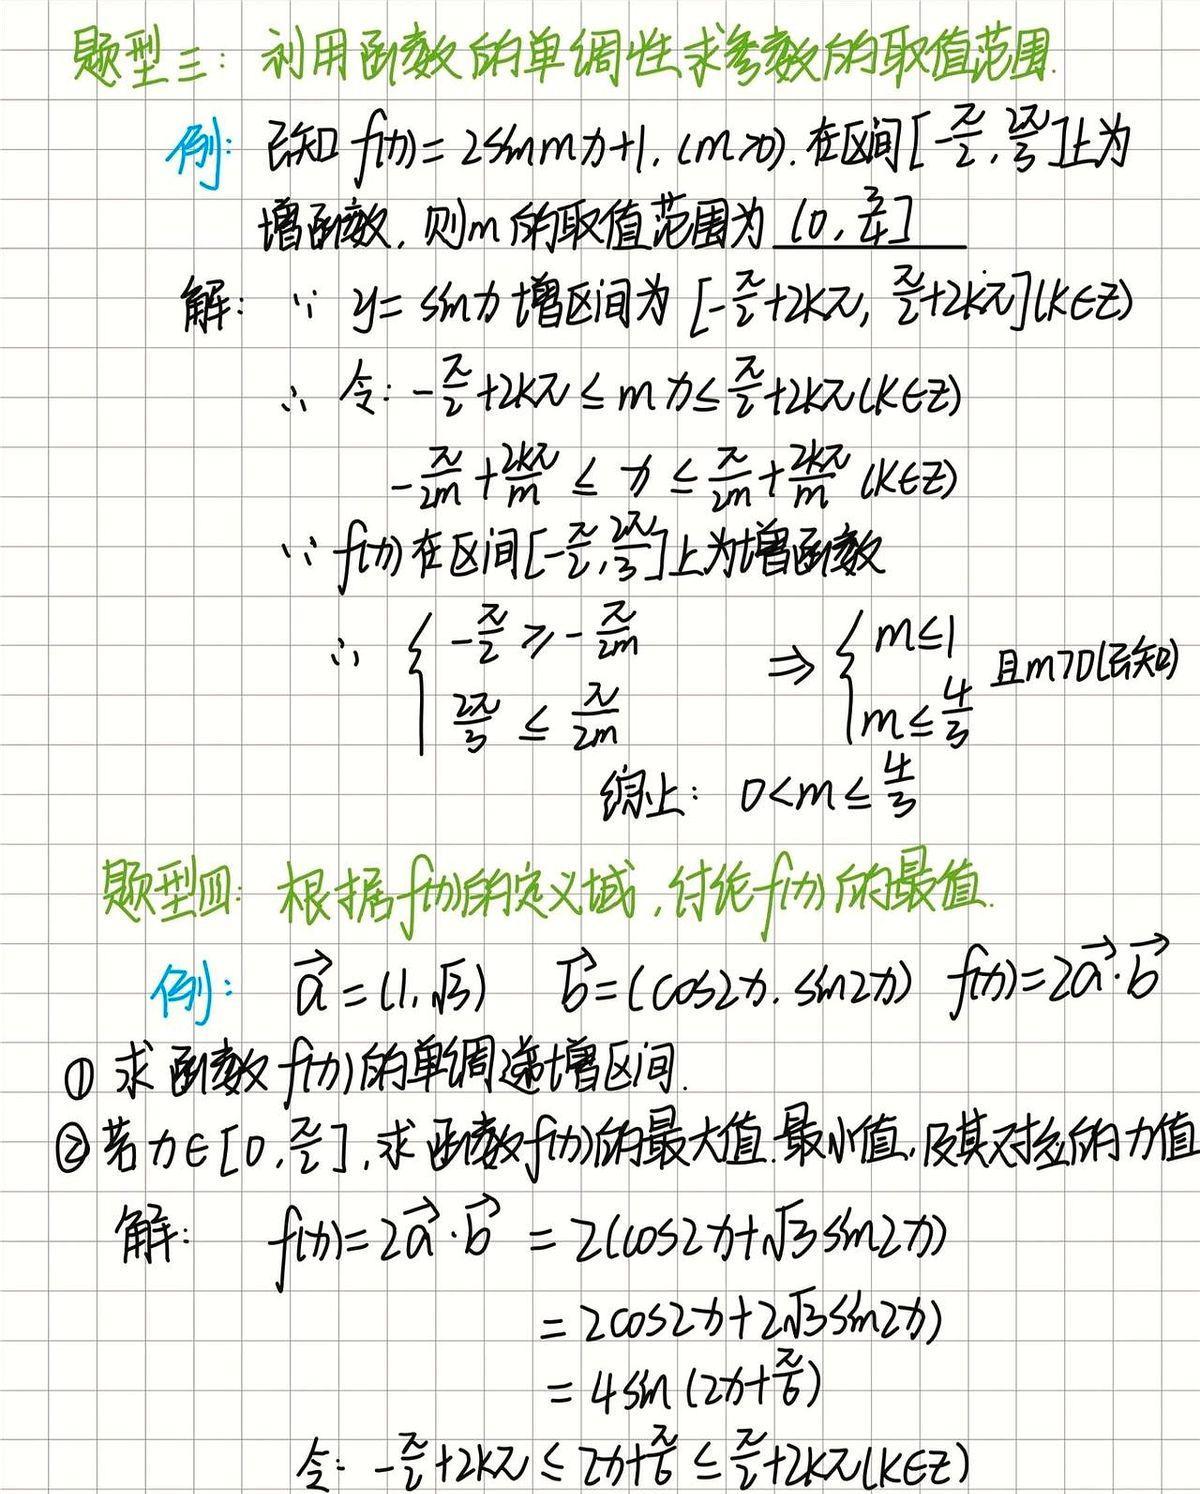 题型三: 利用函数的单调性求参数的取值范围.
例: 已知 f(x)=2sinmx+1, (m>0). 在区间[-π/2, 2π/3]上为
增函数, 则m的取值范围为 (0, 3/4]
解: ∵ y=sinx增区间为 [-π/2+2kπ, π/2+2kπ](k∈Z)
∴ 令: -π/2+2kπ ≤ mx ≤ π/2+2kπ(k∈Z)
-π/2m + 2kπ/m ≤ x ≤ π/2m + 2kπ/m (k∈Z)
∵ f(x)在区间[-π/2, 2π/3]上为增函数
∴ { -π/2 ≥ -π/2m ⇒ { m≤1 且m>0(已知)
2π/3 ≤ π/2m m≤4/3
综上: 0<m≤4/3
题型四: 根据f(x)的定义域, 讨论f(x)的最值.
例: a⃗=(1,√3) b⃗=(cos2x, sin2x) f(x)=2a⃗·b⃗
① 求函数f(x)的单调递增区间.
② 若x∈[0, π/2], 求函数f(x)的最大值.最小值, 及其对应的x值
解: f(x)=2a⃗·b⃗ = 2(cos2x+√3sin2x)
= 2cos2x+2√3sin2x)
= 4sin(2x+π/6)
令: -π/2+2kπ ≤ 2x+π/6 ≤ π/2+2kπ(k∈Z)